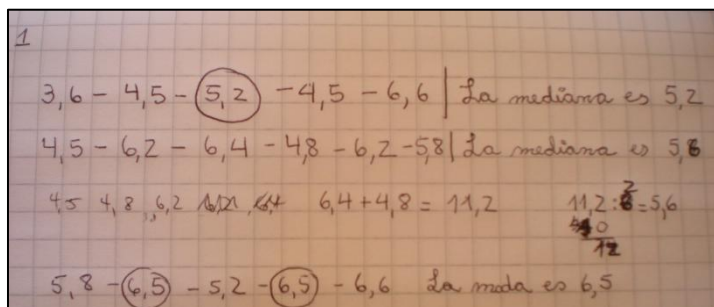 1
3,6 - 4,5 - 5,2 - 4,5 - 6,6 | La mediana es 5,2
4,5 - 6,2 - 6,4 - 4,8 - 6,2 - 5,8 | La mediana es 5,6
4,5 4,8, 6,2 6,4 + 4,8 = 11,2 11,2 : 2 = 5,6
12
5,8 - 6,5 - 5,2 - 6,5 - 6,6 La moda es 6,5